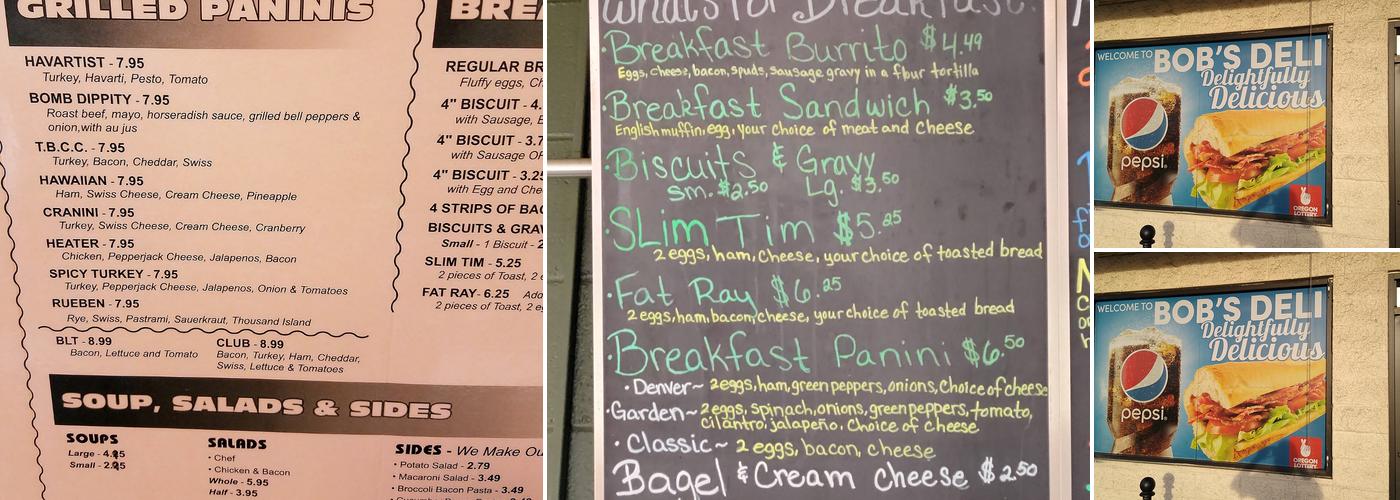 GRILLED PANINIS
HAVARTIST - 7.95
Turkey, Havarti, Pesto, Tomato
BOMB DIPPITY - 7.95
Roast beef, mayo, horseradish sauce, grilled bell peppers &
onion,with au jus
T.B.C.C. - 7.95
Turkey, Bacon, Cheddar, Swiss
HAWAIIAN - 7.95
Ham, Swiss Cheese, Cream Cheese, Pineapple
CRANINI - 7.95
Turkey, Swiss Cheese, Cream Cheese, Cranberry
HEATER - 7.95
Chicken, Pepperjack Cheese, Jalapenos, Bacon
SPICY TURKEY - 7.95
Turkey, Pepperjack Cheese, Jalapenos, Onion & Tomatoes
RUEBEN - 7.95
Rye, Swiss, Pastrami, Sauerkraut, Thousand Island
BLT - 8.99
Bacon, Lettuce and Tomato
CLUB - 8.99
Bacon, Turkey, Ham, Cheddar,
Swiss, Lettuce & Tomatoes
BREA
REGULAR BR
Fluffy eggs, Ch
4" BISCUIT - 4.
with Sausage, E
4" BISCUIT - 3.7
with Sausage OR
4" BISCUIT - 3.25
with Egg and Che
4 STRIPS OF BAC
BISCUITS & GRAV
Small - 1 Biscuit - 2
SLIM TIM - 5.25
2 pieces of Toast, 2 e
FAT RAY- 6.25 Add
2 pieces of Toast, 2 eg
SOUP, SALADS & SIDES
SOUPS
Large - 4.95
Small - 2.95
SALADS
• Chef
• Chicken & Bacon
Whole - 5.95
Half - 3.95
SIDES - We Make Ou
• Potato Salad - 2.79
• Macaroni Salad - 3.49
• Broccoli Bacon Pasta - 3.49
What's for Breakfast?
·Breakfast Burrito $4.49
Eggs, cheese, bacon, spuds, sausage gravy in a flour tortilla
·Breakfast Sandwich $3.50
English muffin, egg, your choice of meat and cheese
·Biscuits & Gravy
Sm. $2.50 Lg. $3.50
·SLim Tim $5.25
2 eggs, ham, cheese, your choice of toasted bread
·Fat Ray $6.25
2 eggs, ham, bacon, cheese, your choice of toasted bread
·Breakfast Panini $6.50
·Denver~ 2 eggs, ham, green peppers, onions, choice of cheese
·Garden~ 2 eggs, spinach, onions, green peppers, tomato,
cilantro, jalapeño, choice of cheese
·Classic~ 2 eggs, bacon, cheese
Bagel & Cream Cheese $2.50
WELCOME TO BOB'S DELI
Delightfully
Delicious
pepsi
OREGON
LOTTERY
WELCOME TO BOB'S DELI
Delightfully
Delicious
pepsi
OREGON
LOTTERY